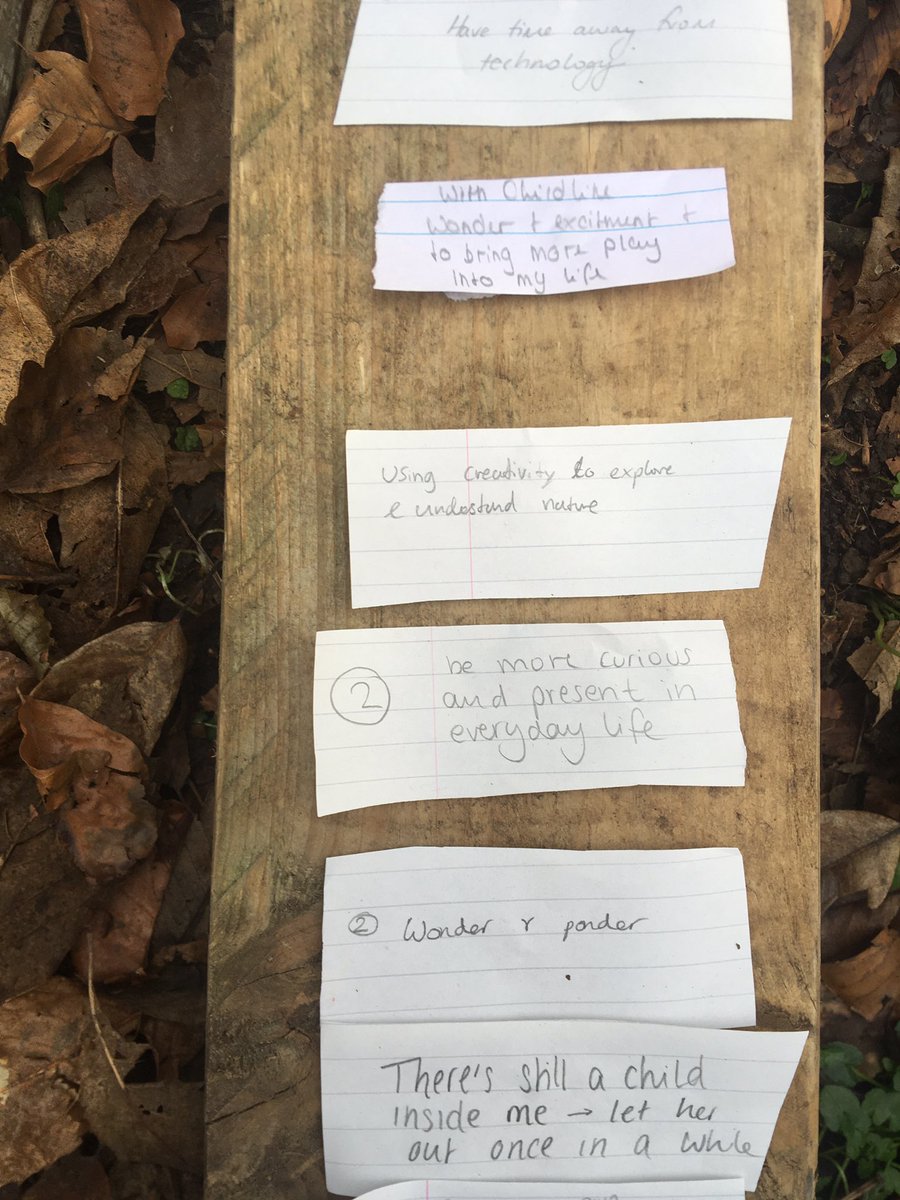 Have time away from
technology
With Childlike
Wonder + excitment +
to bring more play
into my life
Using creativity to explore
& understand nature
2
be more curious
and present in
everyday life
2 Wonder & ponder
There's still a child
inside me → let her
out once in a while